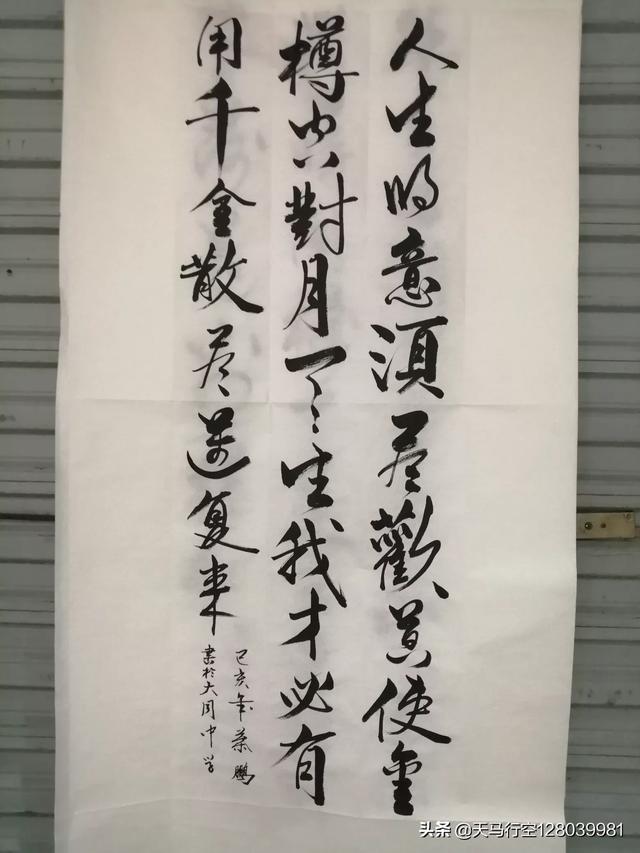 人生得意須尽歡莫使金
樽空對月天生我才必有
用千金散尽還复来
己亥年蔡鵬
書於大同中学
头条 @天马行空128039981